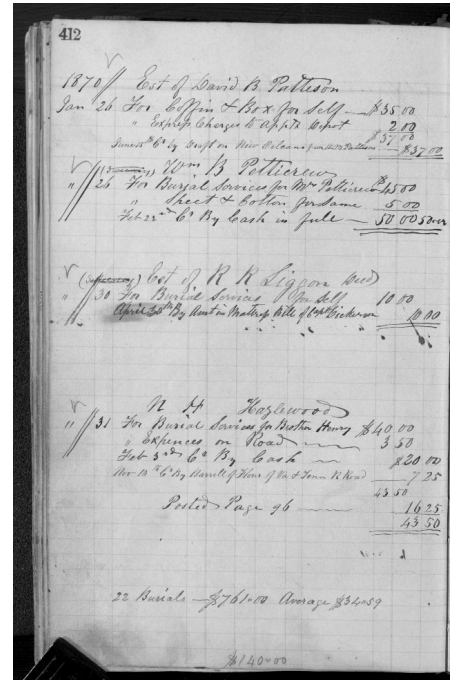 412
1870 Est of David B Patteson
Jan 26 For Coffin & Box for Self $35 00
" Express Charges to Appto Depot 2 00
$37 00
Cr by Draft on New Orleans $37 00
Wm B Pettierew
" 26 For Burial Services for Mrs Pettierew $45 00
" Sheet & Cotton for Same 5 00
Feb 22nd Cr By Cash in full 50 00 50 00
Est of R R Liggon Decd
" 30 For Burial Services for Self 10 00
April 30th By Amt in Bill of 10 00
N H Hazlewood
" 31 For Burial Services for Brother Henry $40 00
" Expences on Road 3 50
Feb 3rd Cr By Cash $20 00
Nov 10th Cr By Barrell of Flour of Va & Tenn R Road 7 25
43 50
Posted Page 96 16 25
43 50
22 Burials $761.00 Average $34.59
$140.00